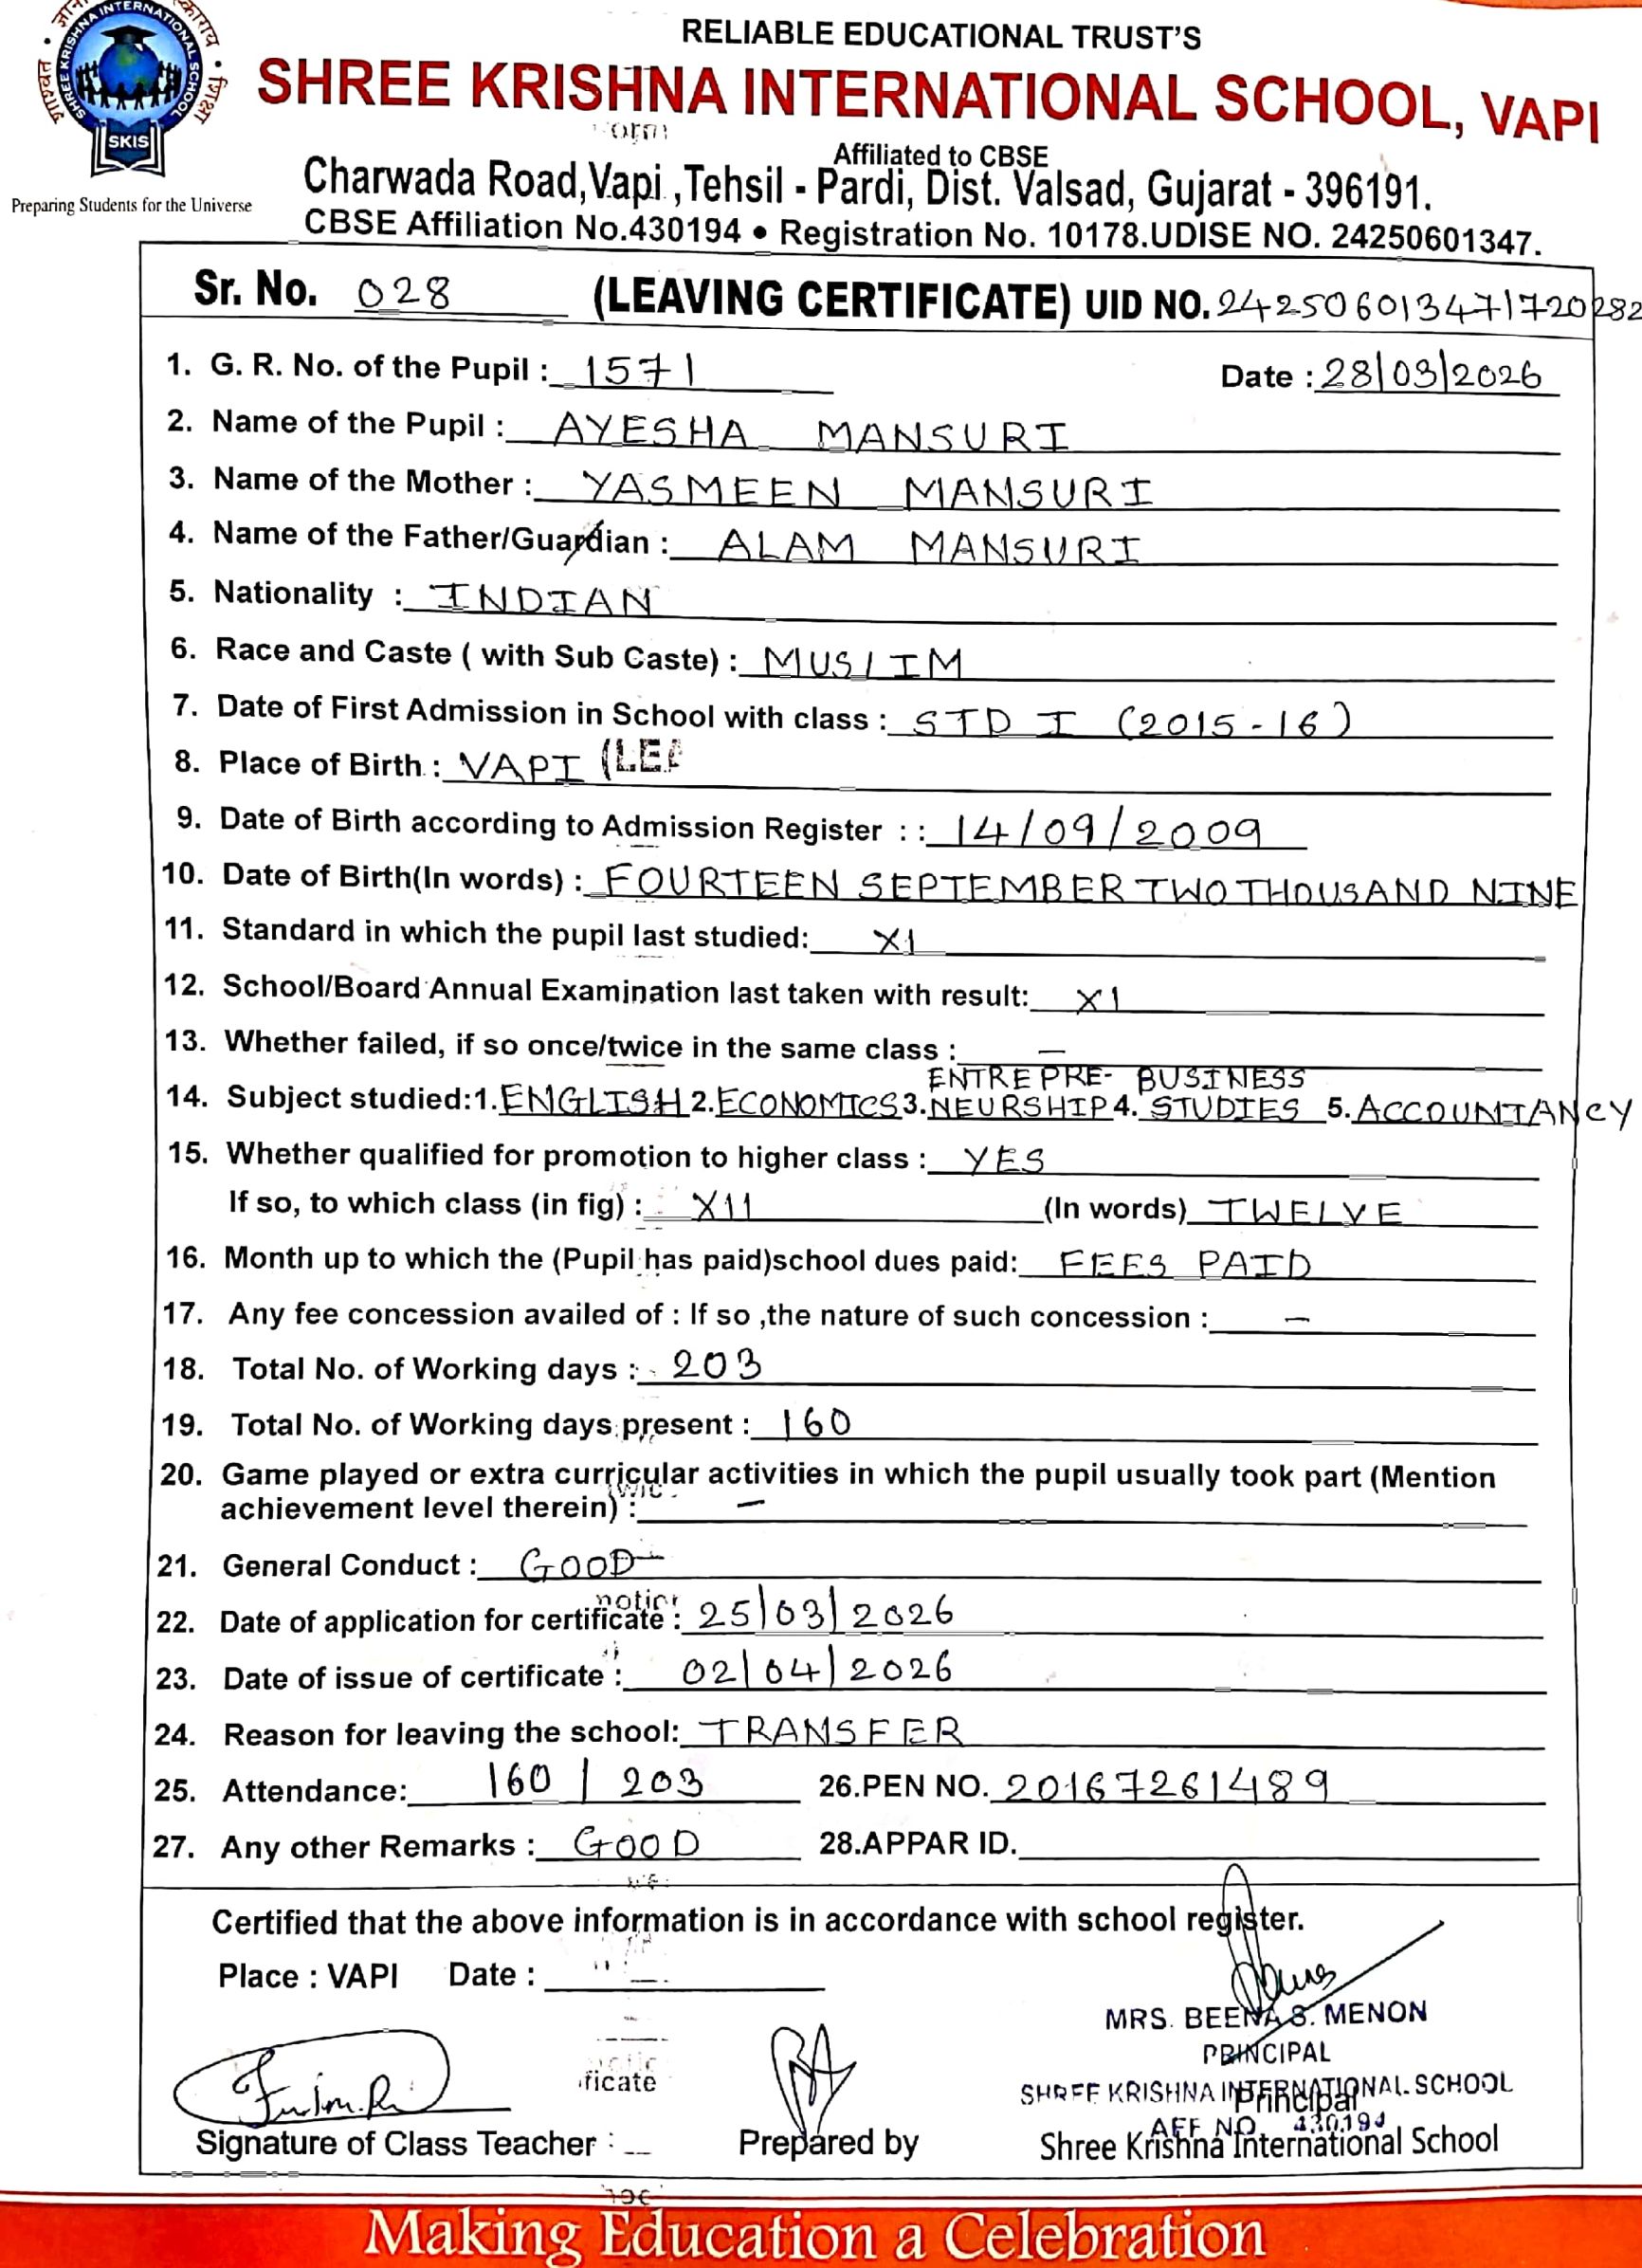 SHREE KRISHNA INTERNATIONAL SCHOOL
SKIS
Preparing Students for the Universe
RELIABLE EDUCATIONAL TRUST'S
SHREE KRISHNA INTERNATIONAL SCHOOL, VAPI
Affiliated to CBSE
Charwada Road,Vapi ,Tehsil - Pardi, Dist. Valsad, Gujarat - 396191.
CBSE Affiliation No.430194 • Registration No. 10178.UDISE NO. 24250601347.
Sr. No. 028 (LEAVING CERTIFICATE) UID NO. 242506013471720282
1. G. R. No. of the Pupil : 1571 Date : 28/03/2026
2. Name of the Pupil : AYESHA MANSURI
3. Name of the Mother : YASMEEN MANSURI
4. Name of the Father/Guardian : ALAM MANSURI
5. Nationality : INDIAN
6. Race and Caste ( with Sub Caste) : MUSLIM
7. Date of First Admission in School with class : STD I (2015-16)
8. Place of Birth : VAPI (LEA
9. Date of Birth according to Admission Register : : 14/09/2009
10. Date of Birth(In words) : FOURTEEN SEPTEMBER TWO THOUSAND NINE
11. Standard in which the pupil last studied: XI
12. School/Board Annual Examination last taken with result: XI
13. Whether failed, if so once/twice in the same class : —
14. Subject studied:1. ENGLISH 2. ECONOMICS 3. ENTREPRE-NEURSHIP 4. BUSINESS STUDIES 5. ACCOUNTANCY
15. Whether qualified for promotion to higher class : YES
If so, to which class (in fig) : XII (In words) TWELVE
16. Month up to which the (Pupil has paid)school dues paid: FEES PAID
17. Any fee concession availed of : If so ,the nature of such concession : —
18. Total No. of Working days : 203
19. Total No. of Working days present : 160
20. Game played or extra curricular activities in which the pupil usually took part (Mention
achievement level therein) : —
21. General Conduct : GOOD
22. Date of application for certificate : 25/03/2026
23. Date of issue of certificate : 02/04/2026
24. Reason for leaving the school: TRANSFER
25. Attendance: 160 / 203 26.PEN NO. 20167261489
27. Any other Remarks : GOOD 28.APPAR ID.
Certified that the above information is in accordance with school register.
Place : VAPI Date :
MRS. BEENA S. MENON
PRINCIPAL
SHREE KRISHNA INTERNATIONAL SCHOOL
Principal
AFF NO 430194
ficate
Signature of Class Teacher : Prepared by Shree Krishna International School
Making Education a Celebration